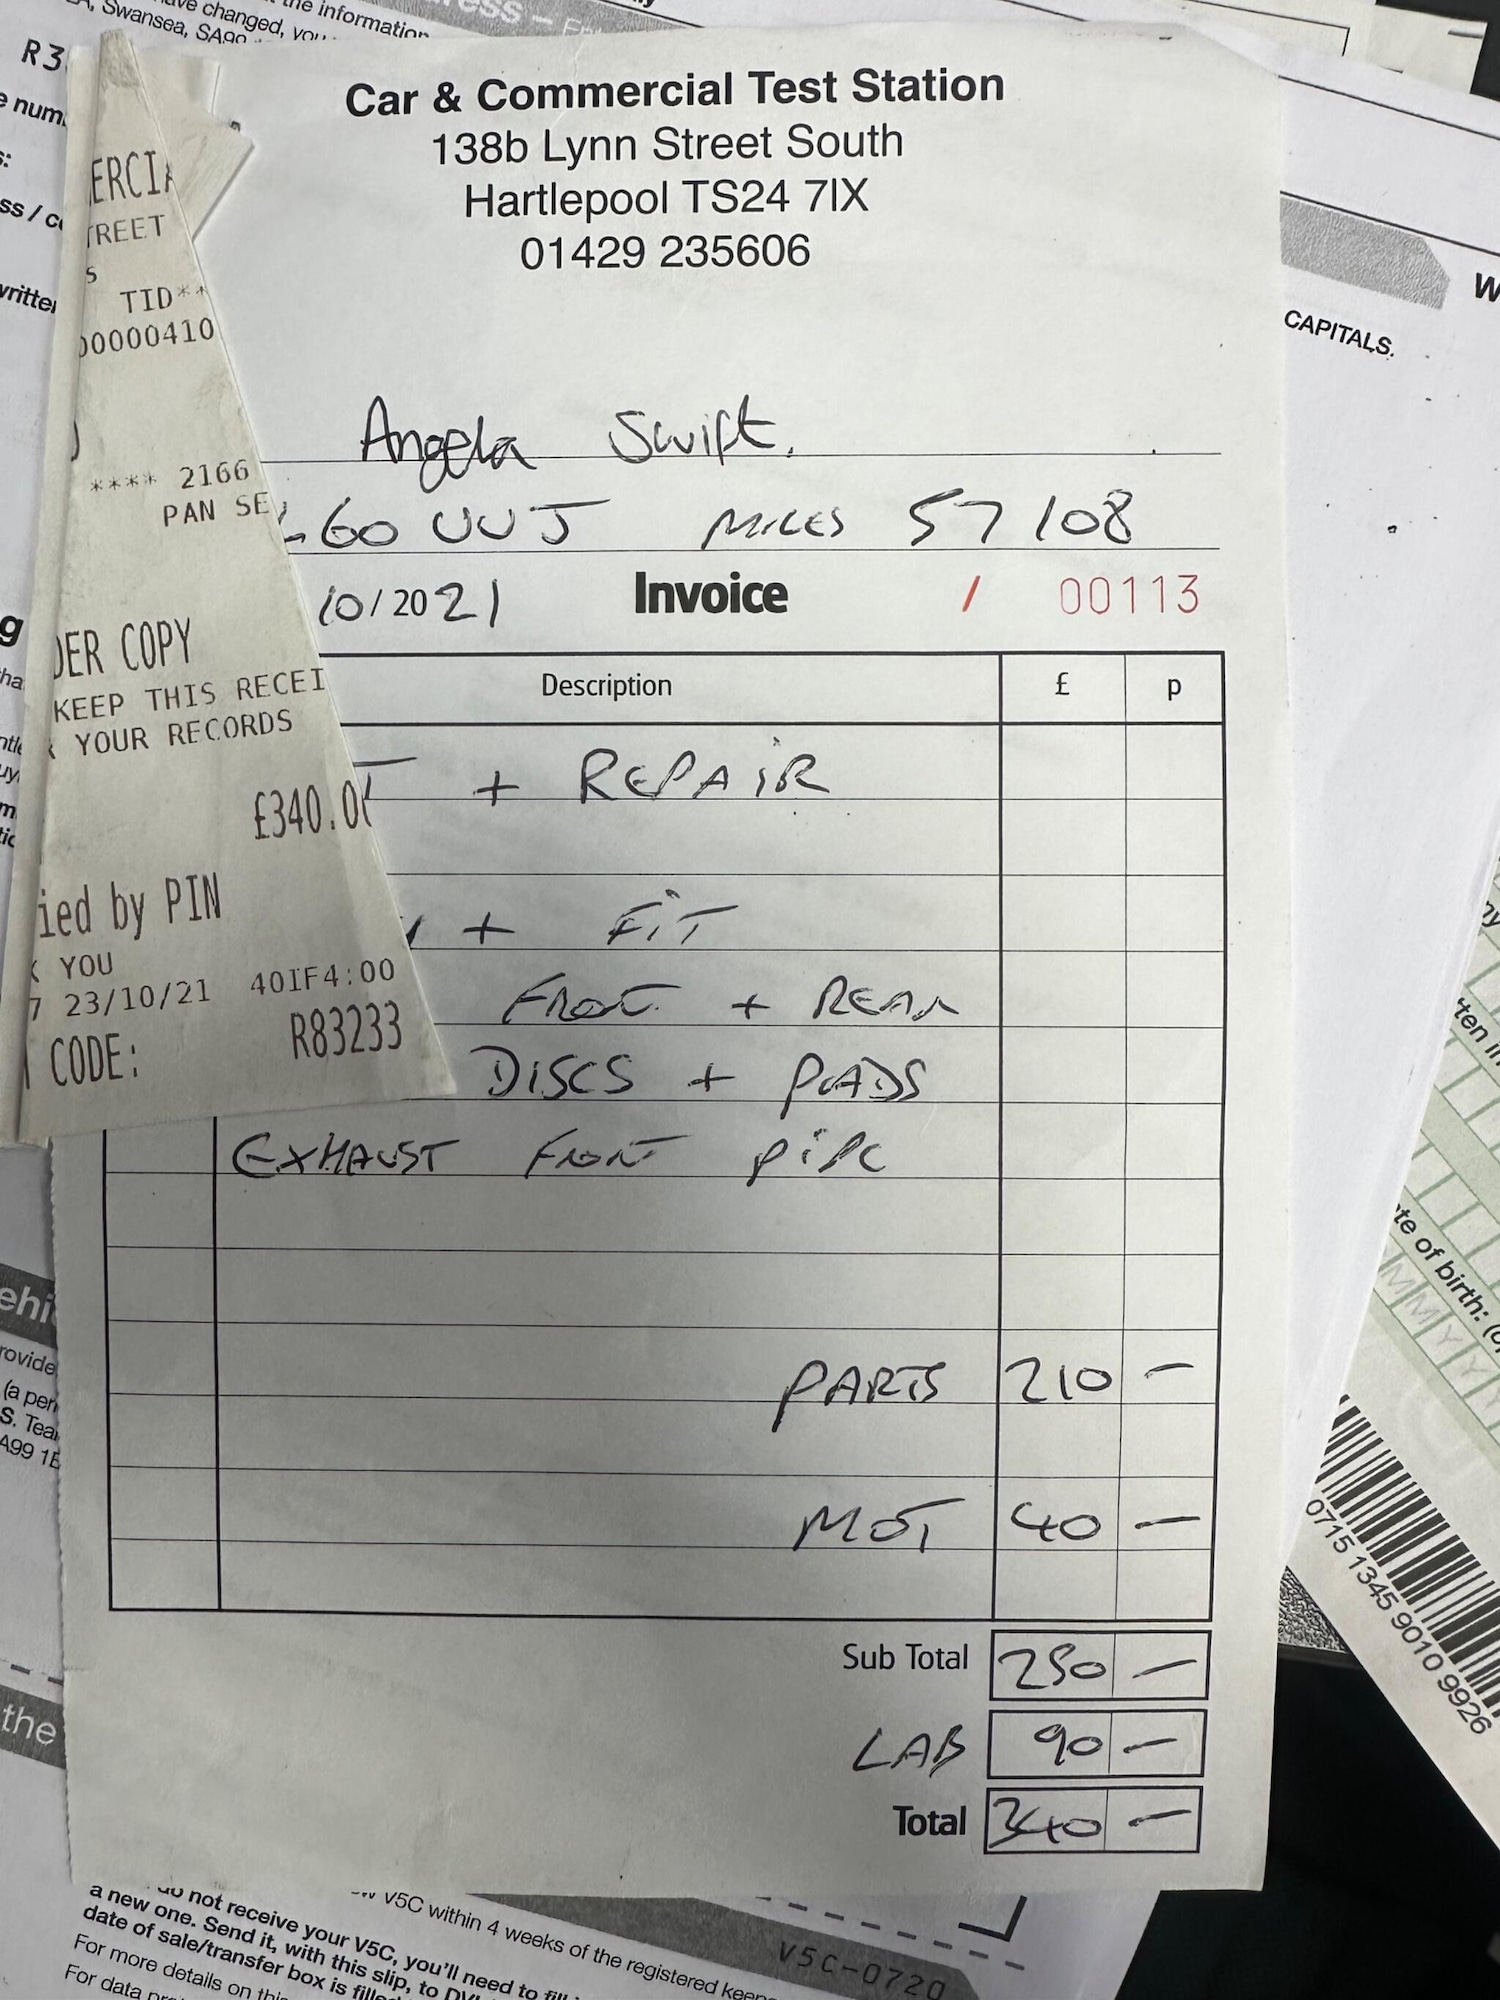 ve changed, you
the information
Swansea, SA99
R3
e num
Car & Commercial Test Station
138b Lynn Street South
Hartlepool TS24 7IX
01429 235606
ERCIA
TREET
S
TID**
00000410
**** 2166
PAN SE
DER COPY
KEEP THIS RECEI
YOUR RECORDS
£340.00
ied by PIN
K YOU
7 23/10/21 40IF4:00
CODE:
R83233
ss / co
written
CAPITALS.
W
Angela Swift.
60 UUJ MILES 57108
10/2021 Invoice / 00113
Description £ p
T + REPAIR
+ FIT
FRONT + REAR
DISCS + PADS
EXHAUST FRONT PIPE
PARTS 210 -
MOT 40 -
Sub Total 250 -
LAB 90 -
Total 340 -
ehi
rovide
(a per
S. Tea
A99 1
the
ten in
te of birth:
MMYY
0715 1345 9010 9926
do not receive your V5C, you'll need to fill
a new one. Send it, with this slip, to DVL
date of sale/transfer box is fille
For more details on this
For data pr
V5C within 4 weeks of the registered keep
V5C-0720